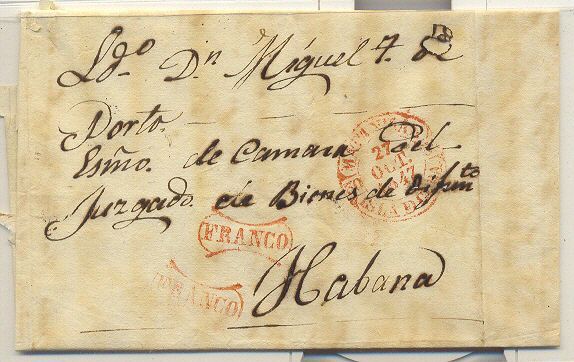 Ldo. Dn Miguel F. de
Porto.
Esño. de Camara del
Juzgado de Bienes de difunto
Habana
FRANCO
FRANCO
27
OCT.
1847
ISLA DE